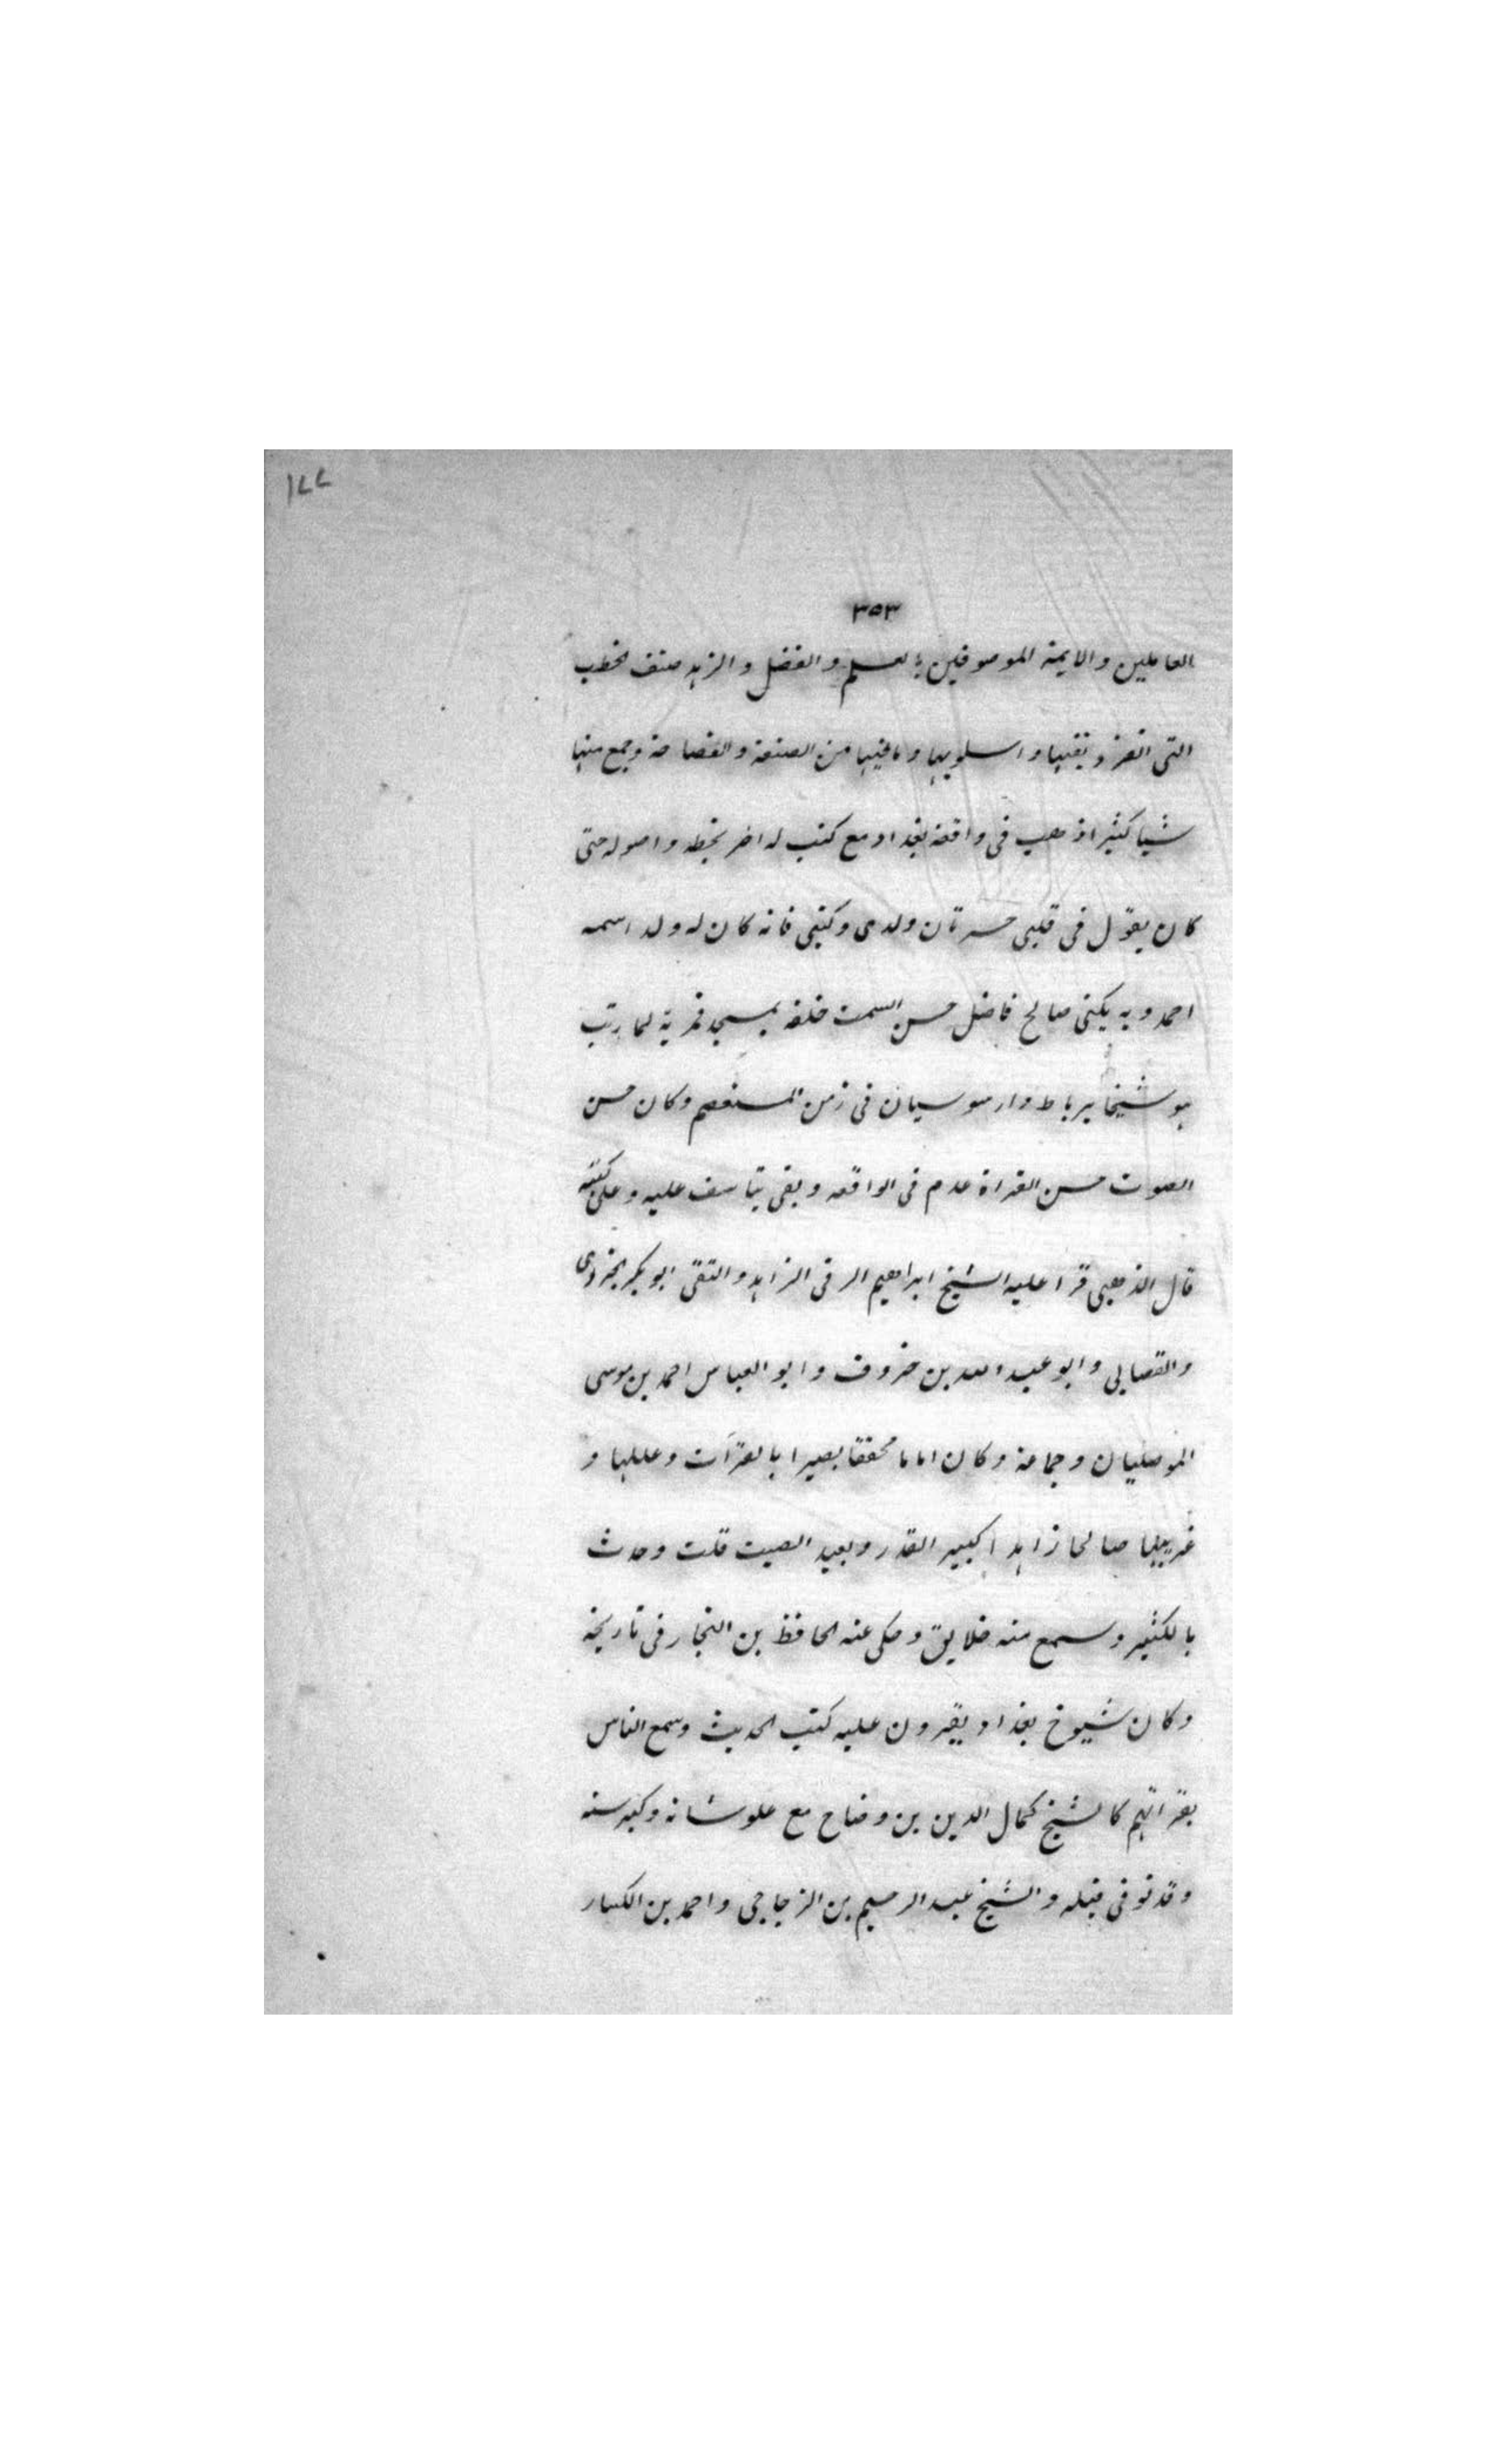 ١٧٧
٣٥٣
العاملين والايمة الموصوفين بالعلم والفضل والزهد صنف الخطب
التى انفرد بفنها واسلوبها وما فيها من الصنعة والفصاحة وجمع منها
شيا كثيرا ذهب فى واقعة بغداد مع كتب له اخر بخطه واصوله حتى
كان يقول فى قلبى حسرتان ولدى وكتبى فانه كان له ولد اسمه
احمد وبه يكنى صالح فاضل حسن السمت خلفه بمسجد قمرية لما رتب
هو شيخا برباط دار سوسيان فى زمن المستعصم وكان حسن
الصوت حسن القراة عدم فى الواقعه وبقى يتاسف عليه وعلى كتبه
قال الذهبى قرا عليه الشيخ ابراهيم الرقى الزاهد والتقى ابو بكر الجزرى
والقصابى وابو عبد الله بن خروف وابو العباس احمد بن موسى
الموصليان وجماعة وكان اماما محققا بصيرا بالقرآت وعللها و
غريبها صالحا زاهدا كبير القدر وبعيد الصيت قلت وحدث
بالكثير وسمع منه خلايق وحكى عنه الحافظ بن النجار فى تاريخه
وكان شيوخ بغداد يقرون عليه كتب الحديث وسمع الناس
بقراتهم كالشيخ كمال الدين بن وضاح مع علو شانه وكبر سنه
وقد توفى قبله والشيخ عبد الرحيم بن الزجاجى واحمد بن الكسار